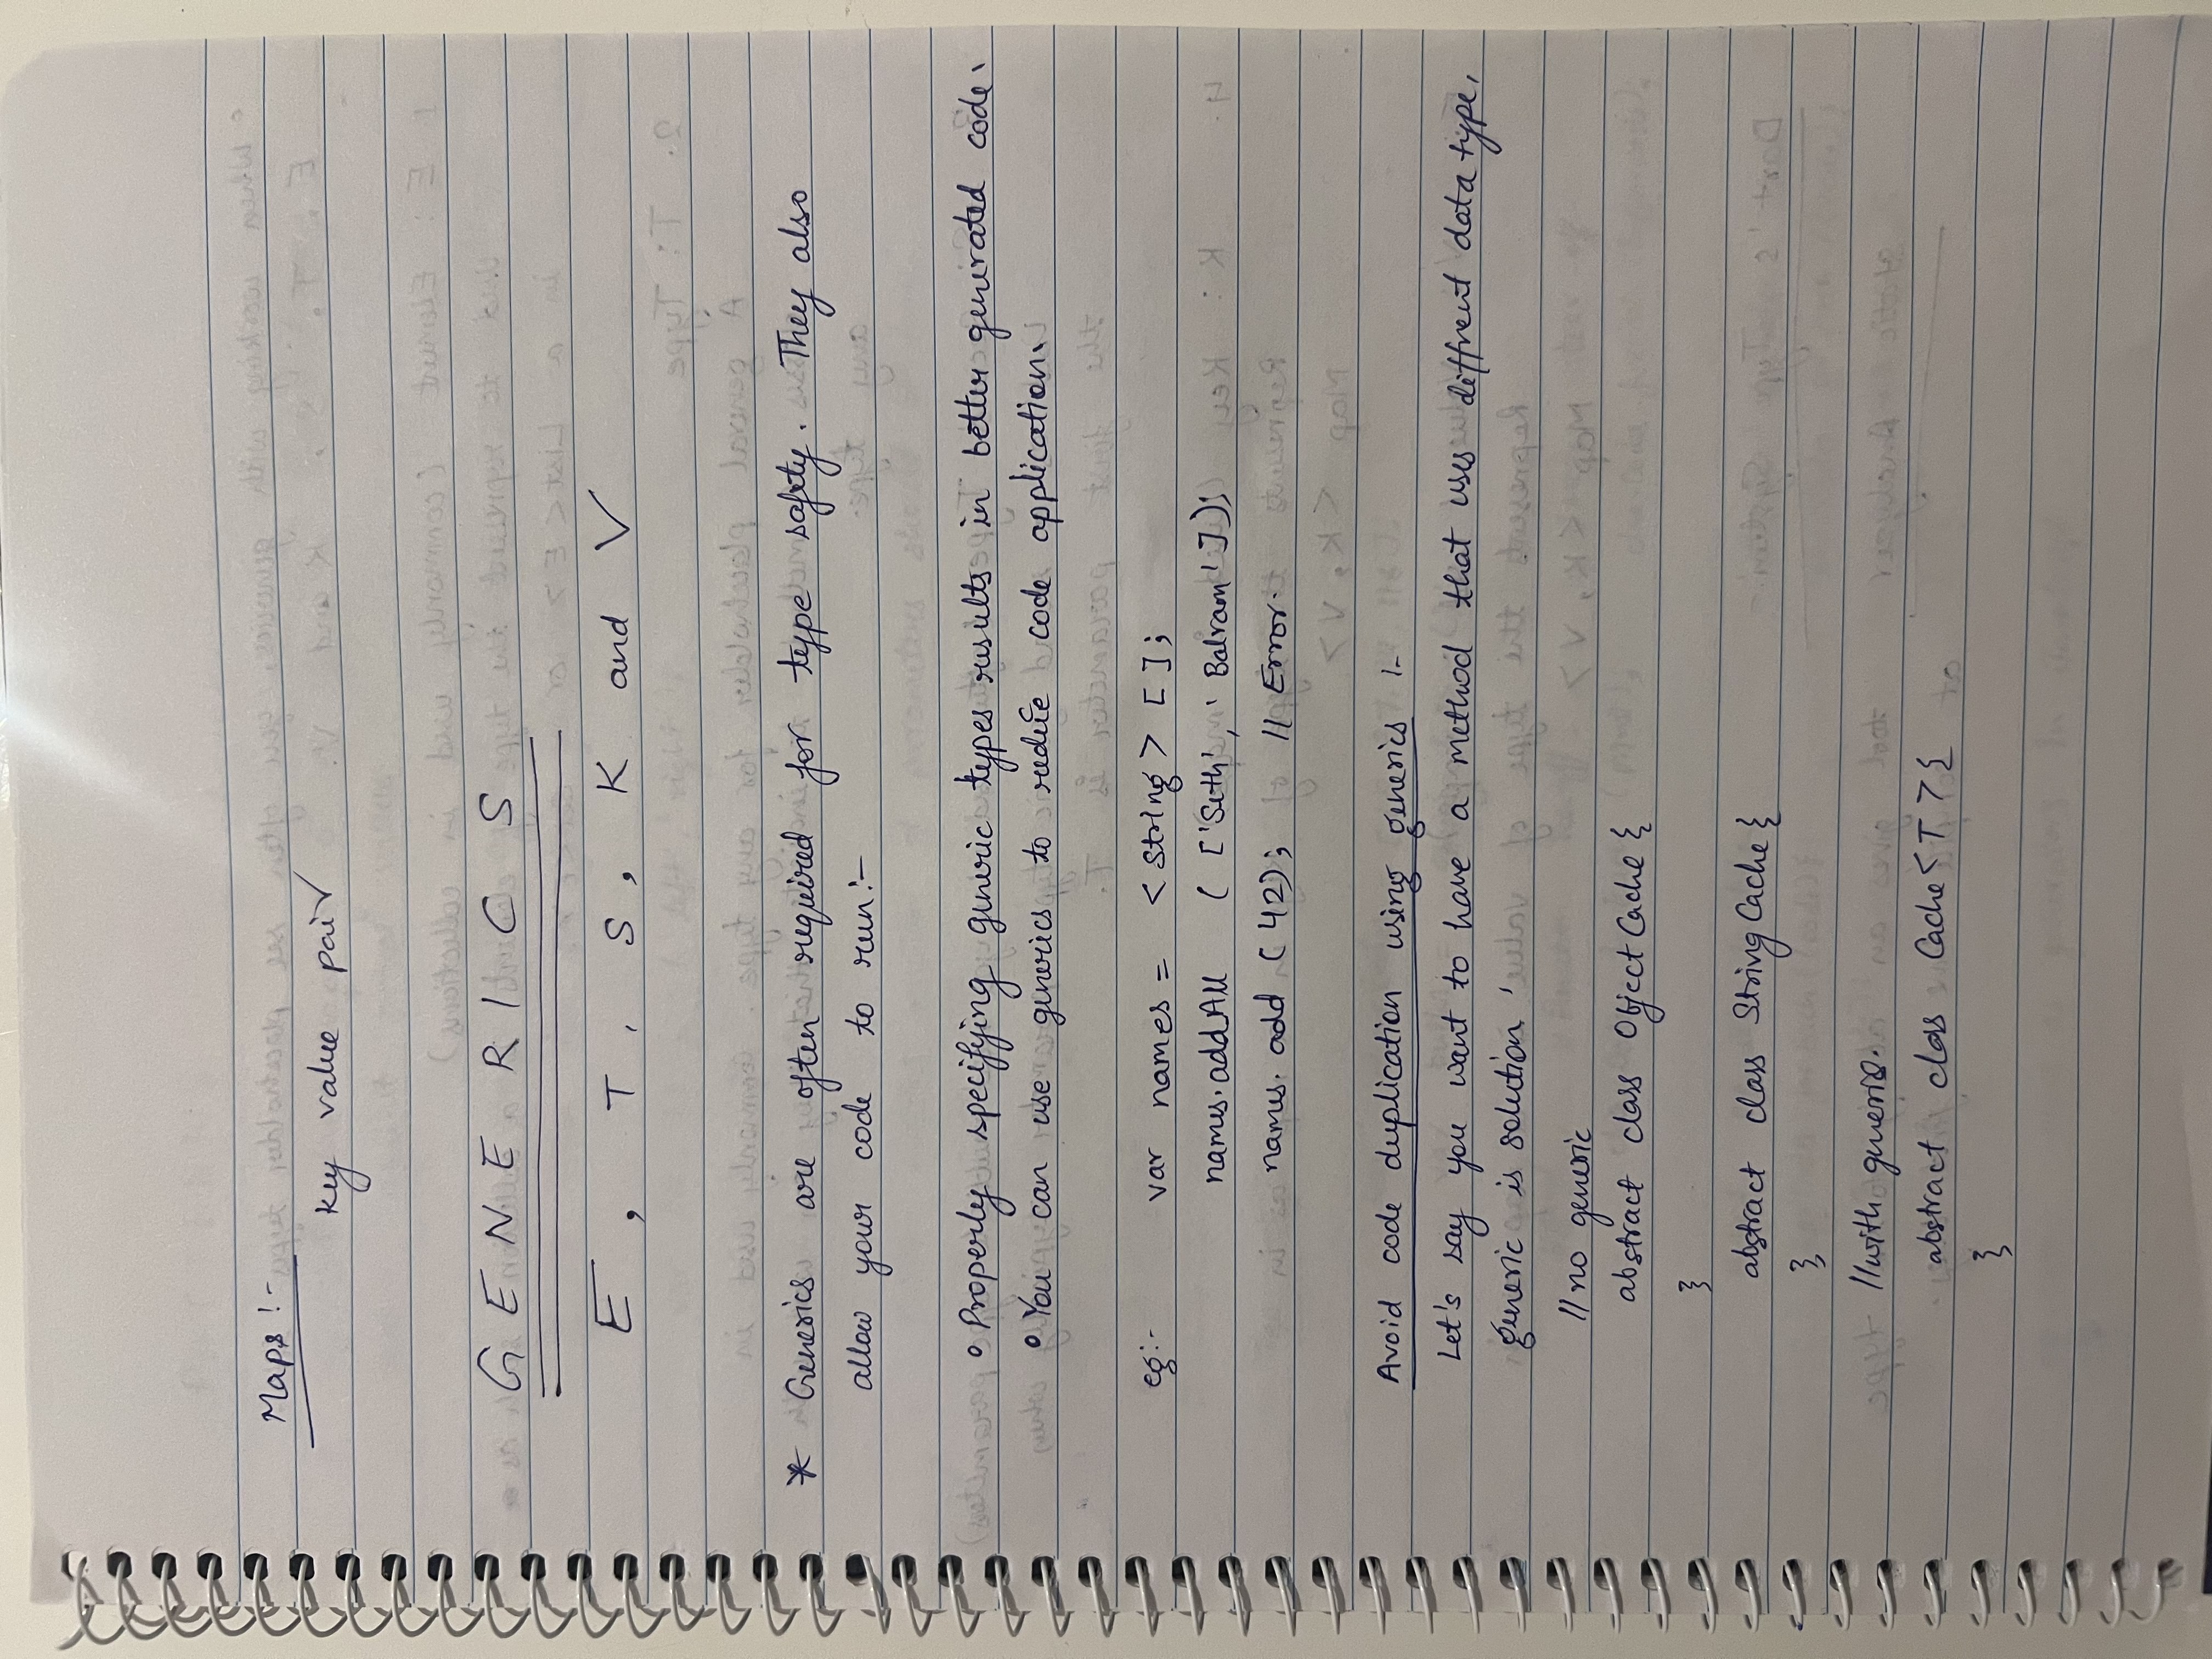 Maps :-
key value pair
GENERICS
E, T, S, K and V
* Generics are often required for type safety. They also
allow your code to run:-
• Properly specifying generic types results in better generated code.
• You can use generics to reduce code application.
eg:- var names = <String> [];
names.addAll (['Seth', 'Balram']);
names.add (42); // Error.
Avoid code duplication using generics :-
Let's say you want to have a method that uses diffrent data type,
generic is solution.
//no generic
abstract class ObjectCache {
}
abstract class StringCache {
}
//with generic.
abstract class Cache<T>{
}